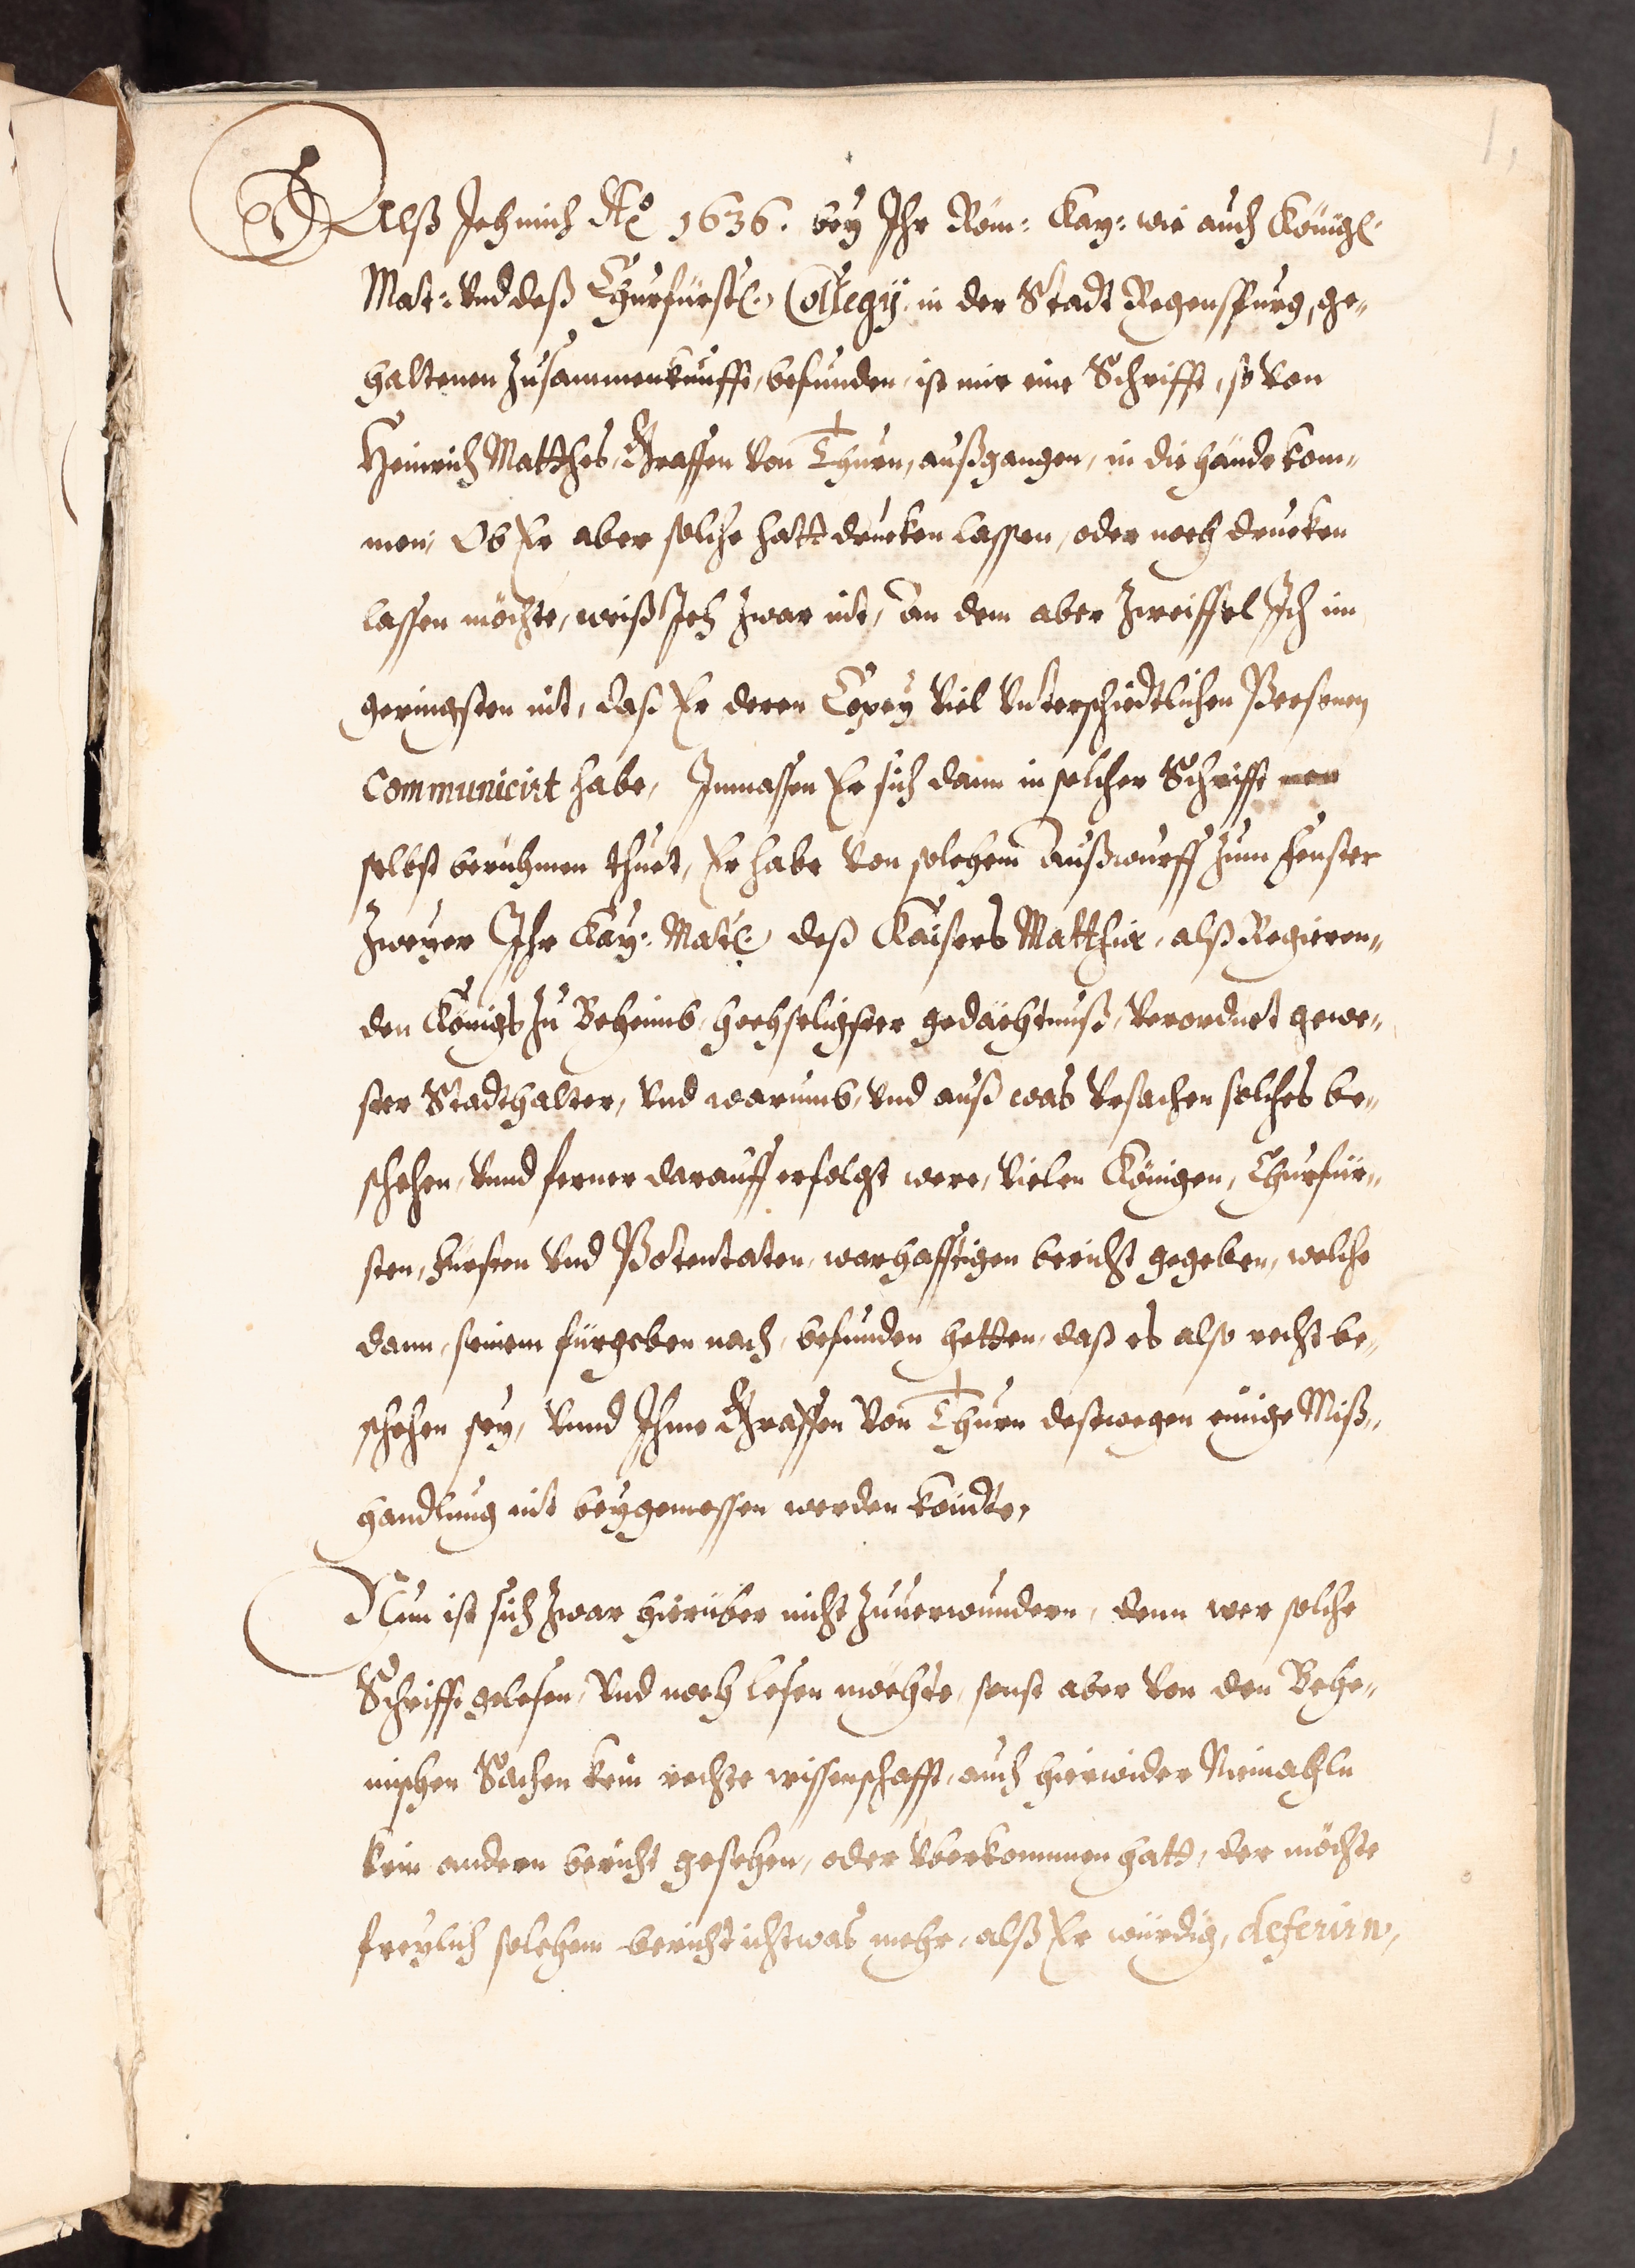 1.
Alß Ich mich Aō 1636. bey Ihr Röm: Kay: wie auch Königl.
Mat: vnd deß Churfürstl. Collegÿ in der Stadt Regenspurg, ge-
haltenen Zusammenkunfft, befunden, ist mir eine Schrifft, so von
Heinrich Matthes, Graffen von Thurn, außgangen, in die hände kom-
men, Ob Er aber solche hatt drucken lassen, oder noch drucken
lassen möchte, weiß Ich zwar nit, An dem aber zweiffel Ich im
geringsten nit, daß Er deren Copey viel vnterschiedtlichen Persenen
Communicirt habe, Inmassen Er sich dann in solcher Schrifft
selbst berühmen thuet, Er habe von solchem Außwurff zum Fenster
Zweyer Ihr Kay: Matt. deß Kaisers Matthiæ, alß Regieren-
den Königs zu Beheimb, hochseligster gedächtnuß, verordnet gewe-
ster Stadthalter, vnd warumb, vnd auß was vrsachen solches be-
schehen, vnnd ferner darauff erfolgt were, vielen Königen, Churfür-
sten, Fürsten vnd Potentaten, warhafftigen bericht gegeben, welche
dann, seinem fürgeben nach, befunden hetten, daß es also recht be-
schehen sey, vnnd Ihme Graffen von Thurn deßwegen einige Miß-
handlung nit beygemessen werden köndte,
Nun ist sich zwar hierüber nicht zuuerwundern, denn wer solche
Schrifft gelesen, vnd noch lesen möchte, sonst aber von den Behe-
mischen Sachen kein rechte wissenschafft, auch hierwider Niemahln
kein andern bericht gesehen, oder vberkommen hatt, der möchte
freylich solchem bericht ichtwas mehr, alß Er würdig, deferirn,